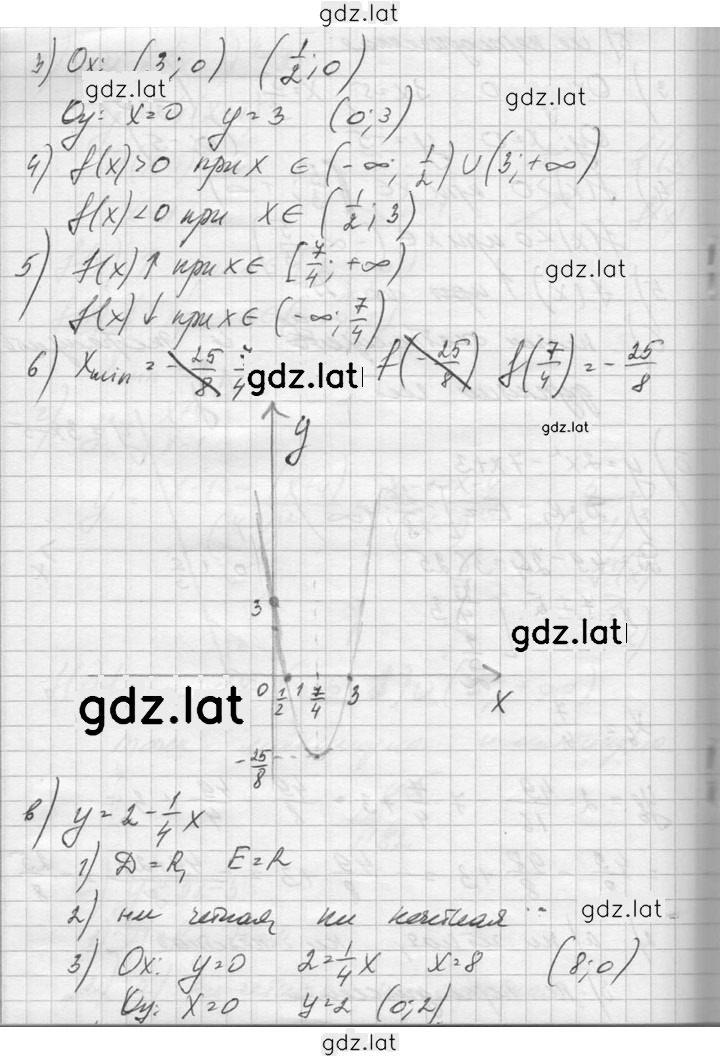 gdz.lat
3) Ox: (3; 0) (1/2; 0)
gdz.lat
Oy: x=0 y=3 (0; 3)
gdz.lat
4) f(x)>0 при x ∈ (-∞; 1/2) ∪ (3; +∞)
f(x)<0 при x ∈ (1/2; 3)
5) f(x)↑ при x ∈ [7/4; +∞)
gdz.lat
f(x)↓ при x ∈ (-∞; 7/4)
6) x min = f(7/4) = -25/8
gdz.lat
gdz.lat
y
3
gdz.lat
0 1/2 1 7/4 3 x
gdz.lat
-25/8
в) y = 2 - 1/4 x
1) D=R, E=R
2) ни четная, ни нечетная
gdz.lat
3) Ox: y=0 2=1/4 x x=8 (8; 0)
Oy: x=0 y=2 (0; 2)
gdz.lat